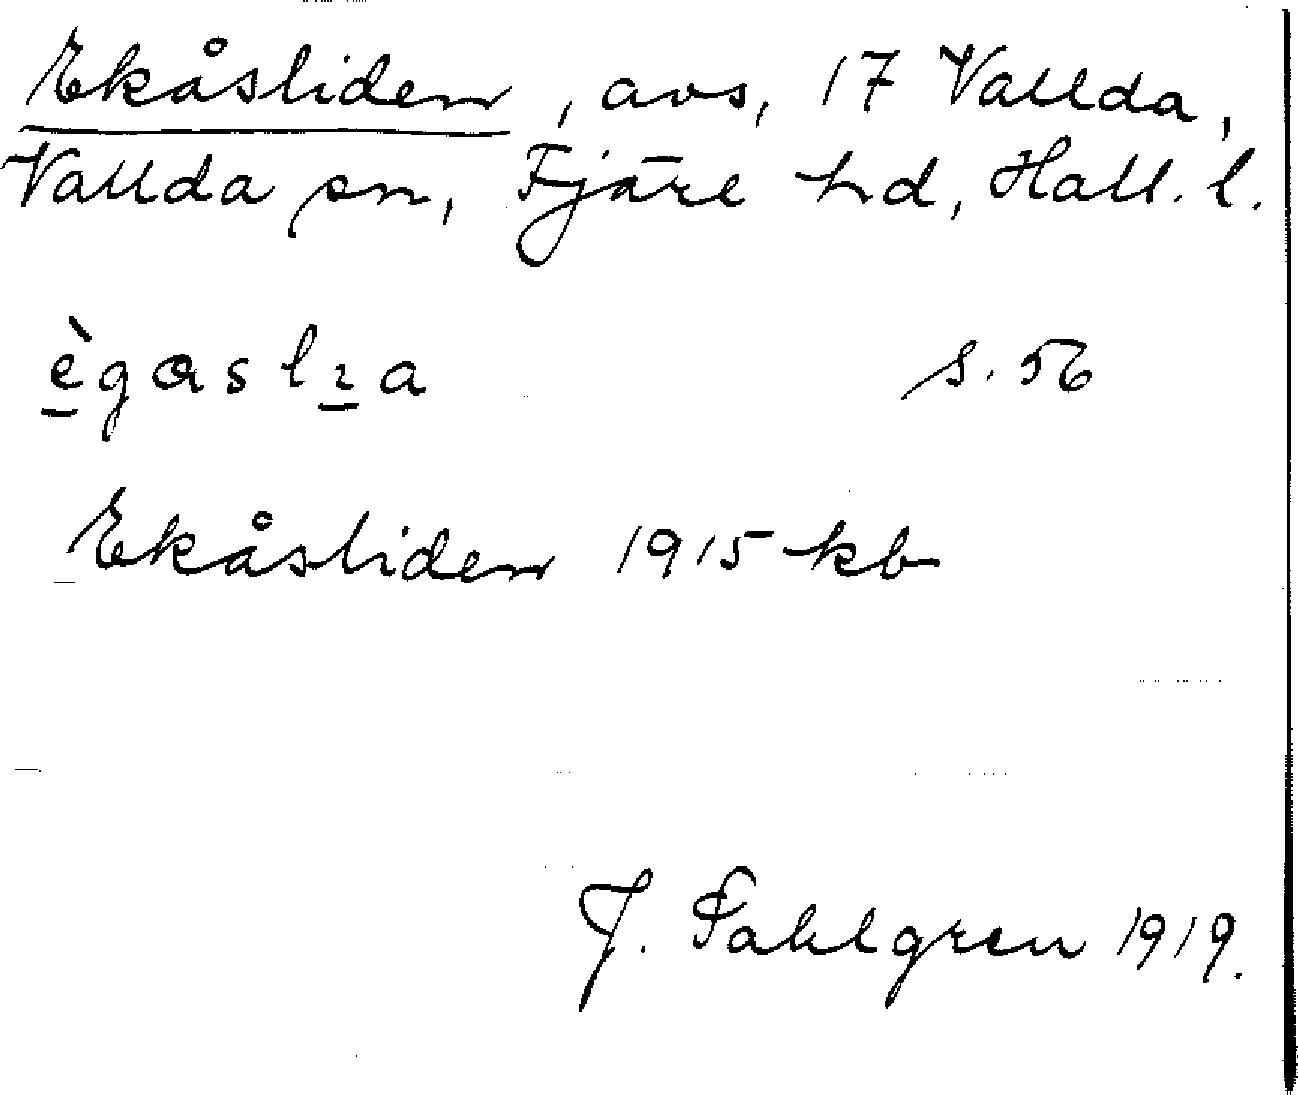 Ekåsliden, avs, 17 Vallda,
Vallda sn, Fjäre hd, Hall. l.
ègaslıa s. 56
Ekåsliden 1915 kb
J. Sahlgren 1919.